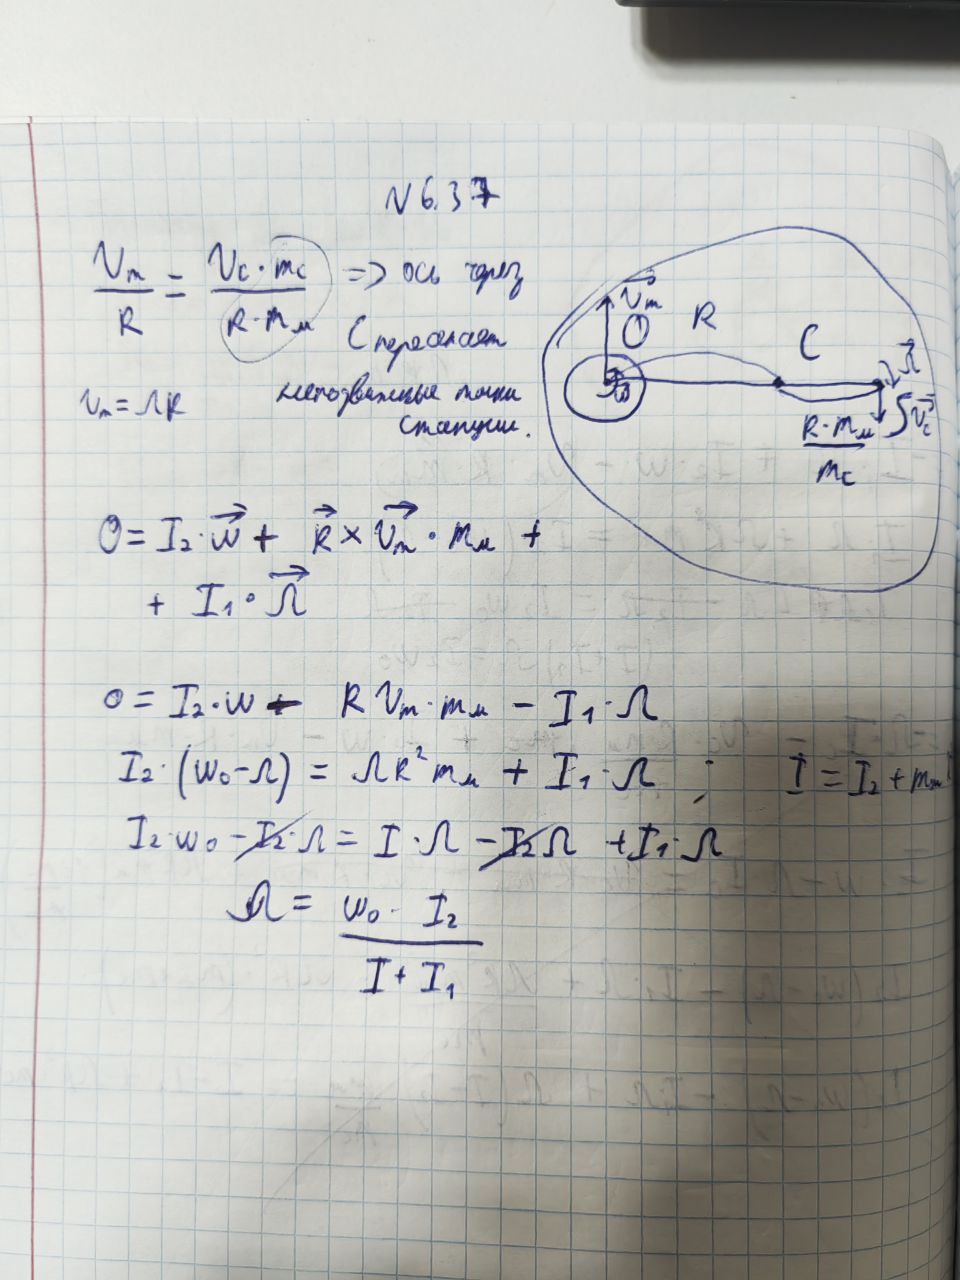 N 6.37
Vm / R = Vc · mc / R · mм => ось через
C пересекает
Vm = ΩR неподвижные точки
станции.
Vm
O
R
C
Ω
ω
Vc
R · mм / mc
0 = I₂ · ω + R × Vm · mм +
+ I₁ · Ω
0 = I₂ · ω - R Vm · mм - I₁ · Ω
I₂ · (ω₀ - Ω) = ΩR² mм + I₁ · Ω ; I = I₂ + mм
I₂ · ω₀ - I₂ · Ω = I · Ω - I₂ Ω + I₁ · Ω
Ω = ω₀ · I₂ / I + I₁